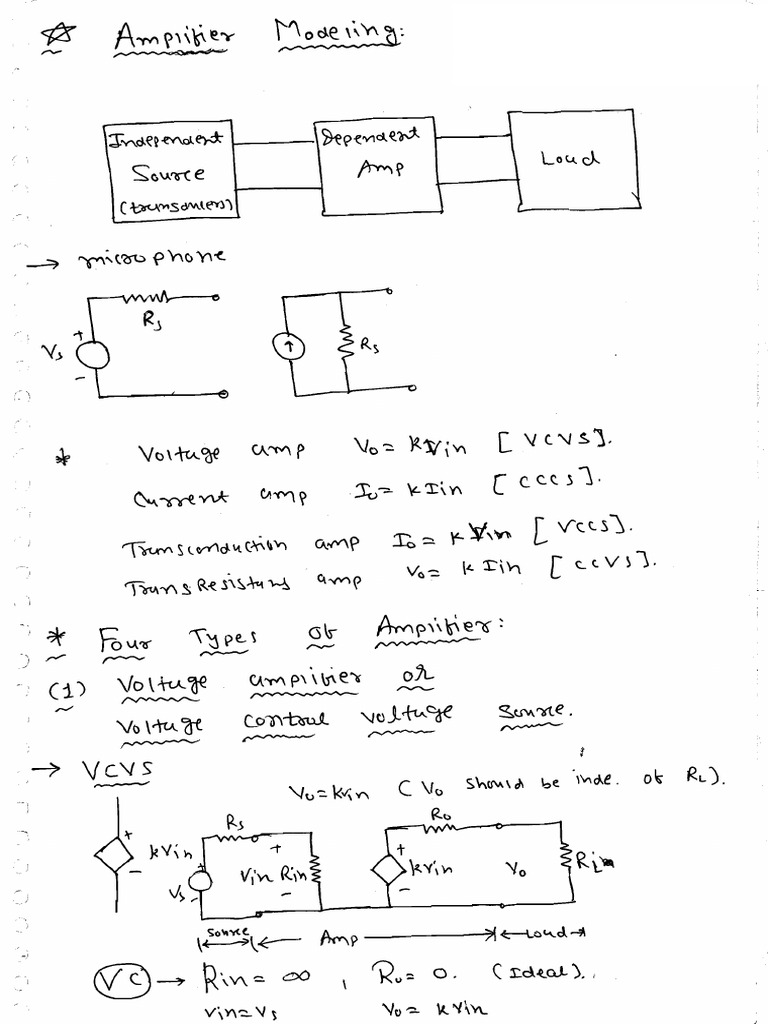 ☆ Amplifier Modeling:
Independent Source (transducers)
Dependent Amp
Load
→ microphone
Rs
Vs + -
Rs
* Voltage amp Vo = kVin [VCVS].
Current amp Io = kIin [CCCS].
Transconduction amp Io = kVin [VCCS].
TransResistans amp Vo = kIin [CCVS].
* Four Types of Amplifier:
(1) Voltage amplifier or
Voltage control voltage source.
→ VCVS
Vo = kvin (Vo should be inde. of RL).
+ - kvin
Rs Vs + - Vin Rin + -
Ro + - kvin Vo RL
Source Amp Load
(VC) → Rin = ∞, Ro = 0. (Ideal).
vin = vs Vo = kvin